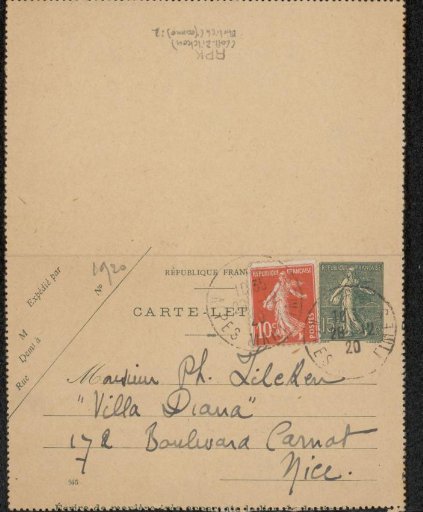 RPK
1920
Expédié par
No
M
Demt à
Rue
RÉPUBLIQUE FRAN
CARTE-LET
REPUBLIQUE FRANÇAISE
10c
POSTES
REPUBLIQUE FRANÇAISE
15c
20
Monsieur Ph. Zilcken
"Villa Diana"
172 Boulevard Carnot
Nice.